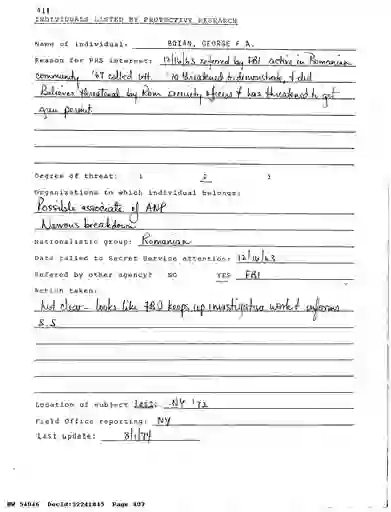 011
INDIVIDUALS LISTED BY PROTECTIVE RESEARCH
Name of individual: BOIAN, GEORGE F A.
Reason for PRS interest: 12/16/63 referred by FBI active in Romanian
community '67 called off. '70 threatened to demonstrate, & did
Believes threatened by Rom security officers & has threatened to get
gun permit
Degree of threat: 1 2 3
Organizations to which individual belongs:
Possible associate of ANP
Nervous breakdown
Nationalistic group: Romanian
Date called to Secret Service attention: 12/16/63
Refered by other agency? NO YES FBI
Action taken:
Not clear - looks like FBO keeps up investigative work & informs
S.S
Location of subject last: NY '72
Field Office reporting: NY
Last update: 8/1/74
HW 54846 DocId:32241845 Page 407